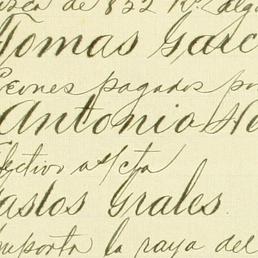 de 852
Tomas Garc
Peones pagados po
Antonio He
fetivo a s/cta
astos Grales.
mporta la raya del